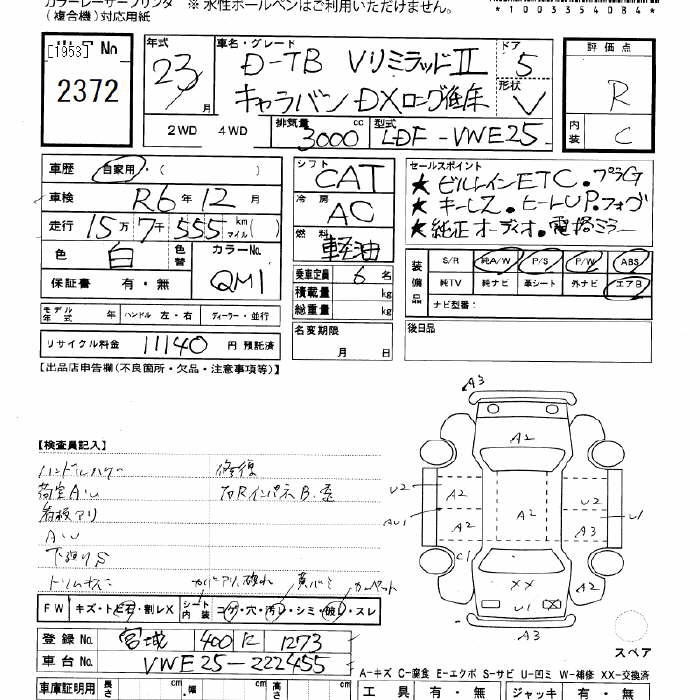 カラーレーザープリンタ ※ 水性ボールペンはご利用いただけません。
(複合機)対応用紙
*100335408 4*
[1953] No
2372
年式 車名・グレード ドア
23 月 D-TB VリミテッドⅡ 5
形状
キャラバン DXロング V
2WD 4WD 排気量 3000 cc 型式 LDF-VWE25
評価点
R
内装 C
車歴 自家用・( )
車検 R6年12月
走行 15万7千555 km マイル( )
色 白 色替 カラーNo. QM1
保証書 有・無
シフト CAT
冷房 AC
燃料 軽油
乗車定員 6 名
積載量 kg
総重量 kg
名変期限 月 日
セールスポイント
★ビルトインETC.プラG
★キーレス.ヒートUP.フォグ
★純正オーディオ.電格ミラー
装備品 S/R 純A/W P/S P/W ABS
純TV 純ナビ 革シート 外ナビ エアB
ナビ型番:
後日品
モデル年式 年 ハンドル 左・右 ディーラー・並行
リサイクル料金 11140 円 預託済
【出品店申告欄(不良箇所・欠品・注意事項等)】
【検査員記入】
修復
荷室A.U 右RインパネB.歪
看板アリ
A.U
下廻りS
A3
A2
U2 A2 A2 U2
AU1 A2 A3 U1
C1
XX A2
U1
A3
スペア
FW キズ・トビ石・割レX シート内装 コゲ・穴・汚レ・シミ・破レ・スレ
登録No. 宮城 400 に 1273
車台No. VWE25-222455
車庫証明用 長さ cm 幅 cm 高さ cm
A-キズ C-腐食 E-エクボ S-サビ U-凹ミ W-補修 XX-交換済
工具 有・無 ジャッキ 有・無